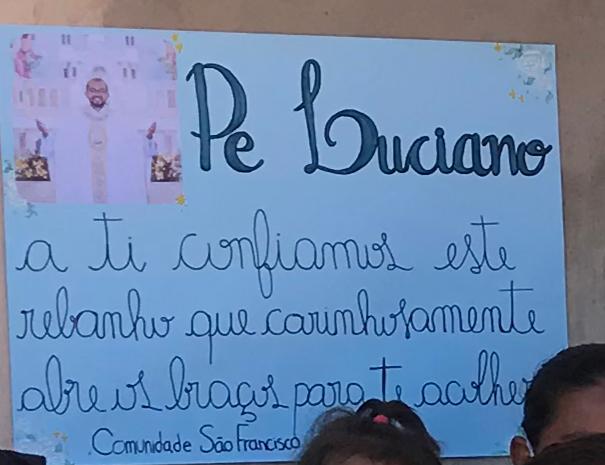 Pe Luciano
a ti confiamos este
rebanho que carinhosamente
abre os braços para te acolher
Comunidade São Francisco